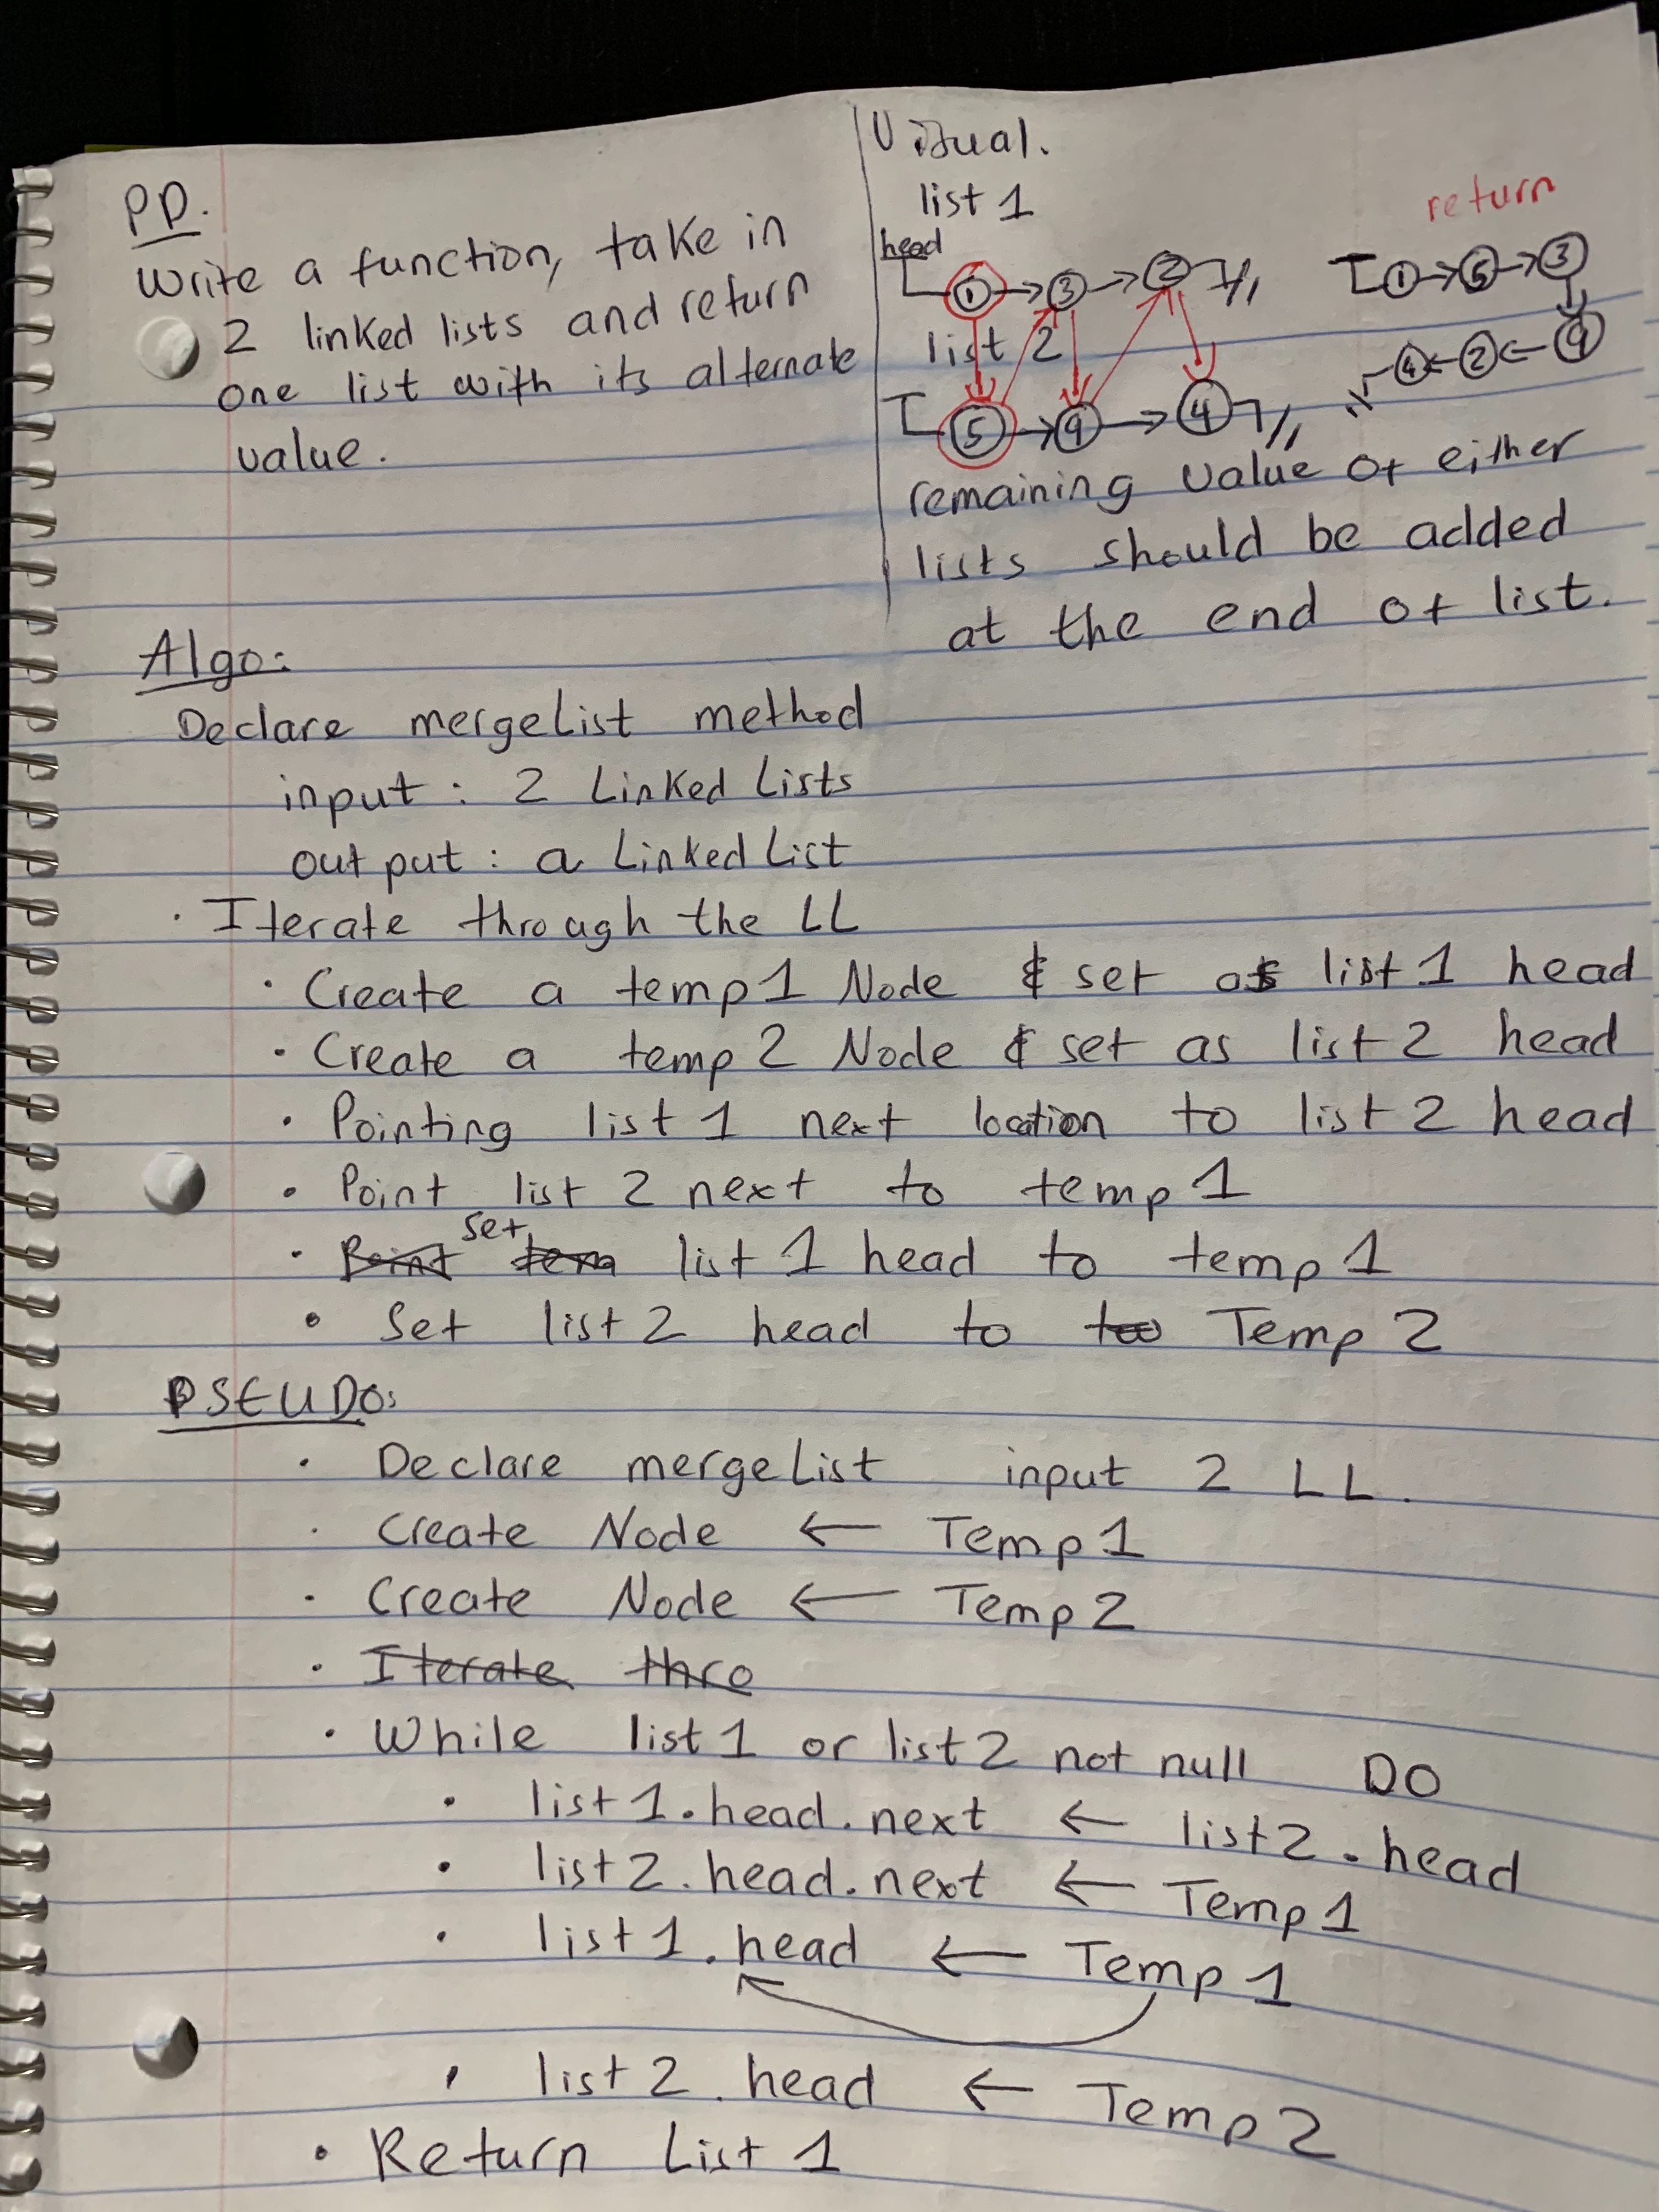 PD.
Write a function, take in
2 linked lists and return
one list with its alternate
value.
Visual.
list 1
head
1 → 3 → 2
list 2
5 → 9 → 4
return
1 → 5 → 3
4 ← 2 ← 9
remaining value of either
lists should be added
at the end of list.
Algo:
Declare mergeList method
input : 2 Linked Lists
output : a Linked List
· Iterate through the LL
· Create a temp1 Node & set as list 1 head
· Create a temp 2 Node & set as list 2 head
· Pointing list 1 next location to list 2 head
· Point list 2 next to temp 1
· set list 1 head to temp 1
· Set list 2 head to Temp 2
PSEUDO:
· Declare mergeList input 2 LL.
· Create Node ← Temp 1
· Create Node ← Temp 2
· Iterate thro
· While list 1 or list 2 not null DO
· list 1.head.next ← list2.head
· list2.head.next ← Temp 1
· list 1.head ← Temp 1
· list 2.head ← Temp 2
· Return List 1